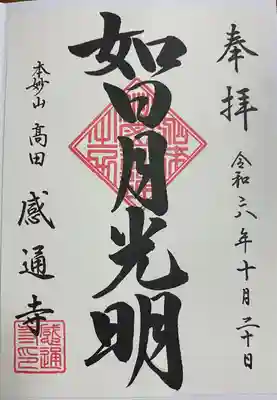 奉拝
令和六年十月二十日
如日月光明
本妙山
高田
感通寺